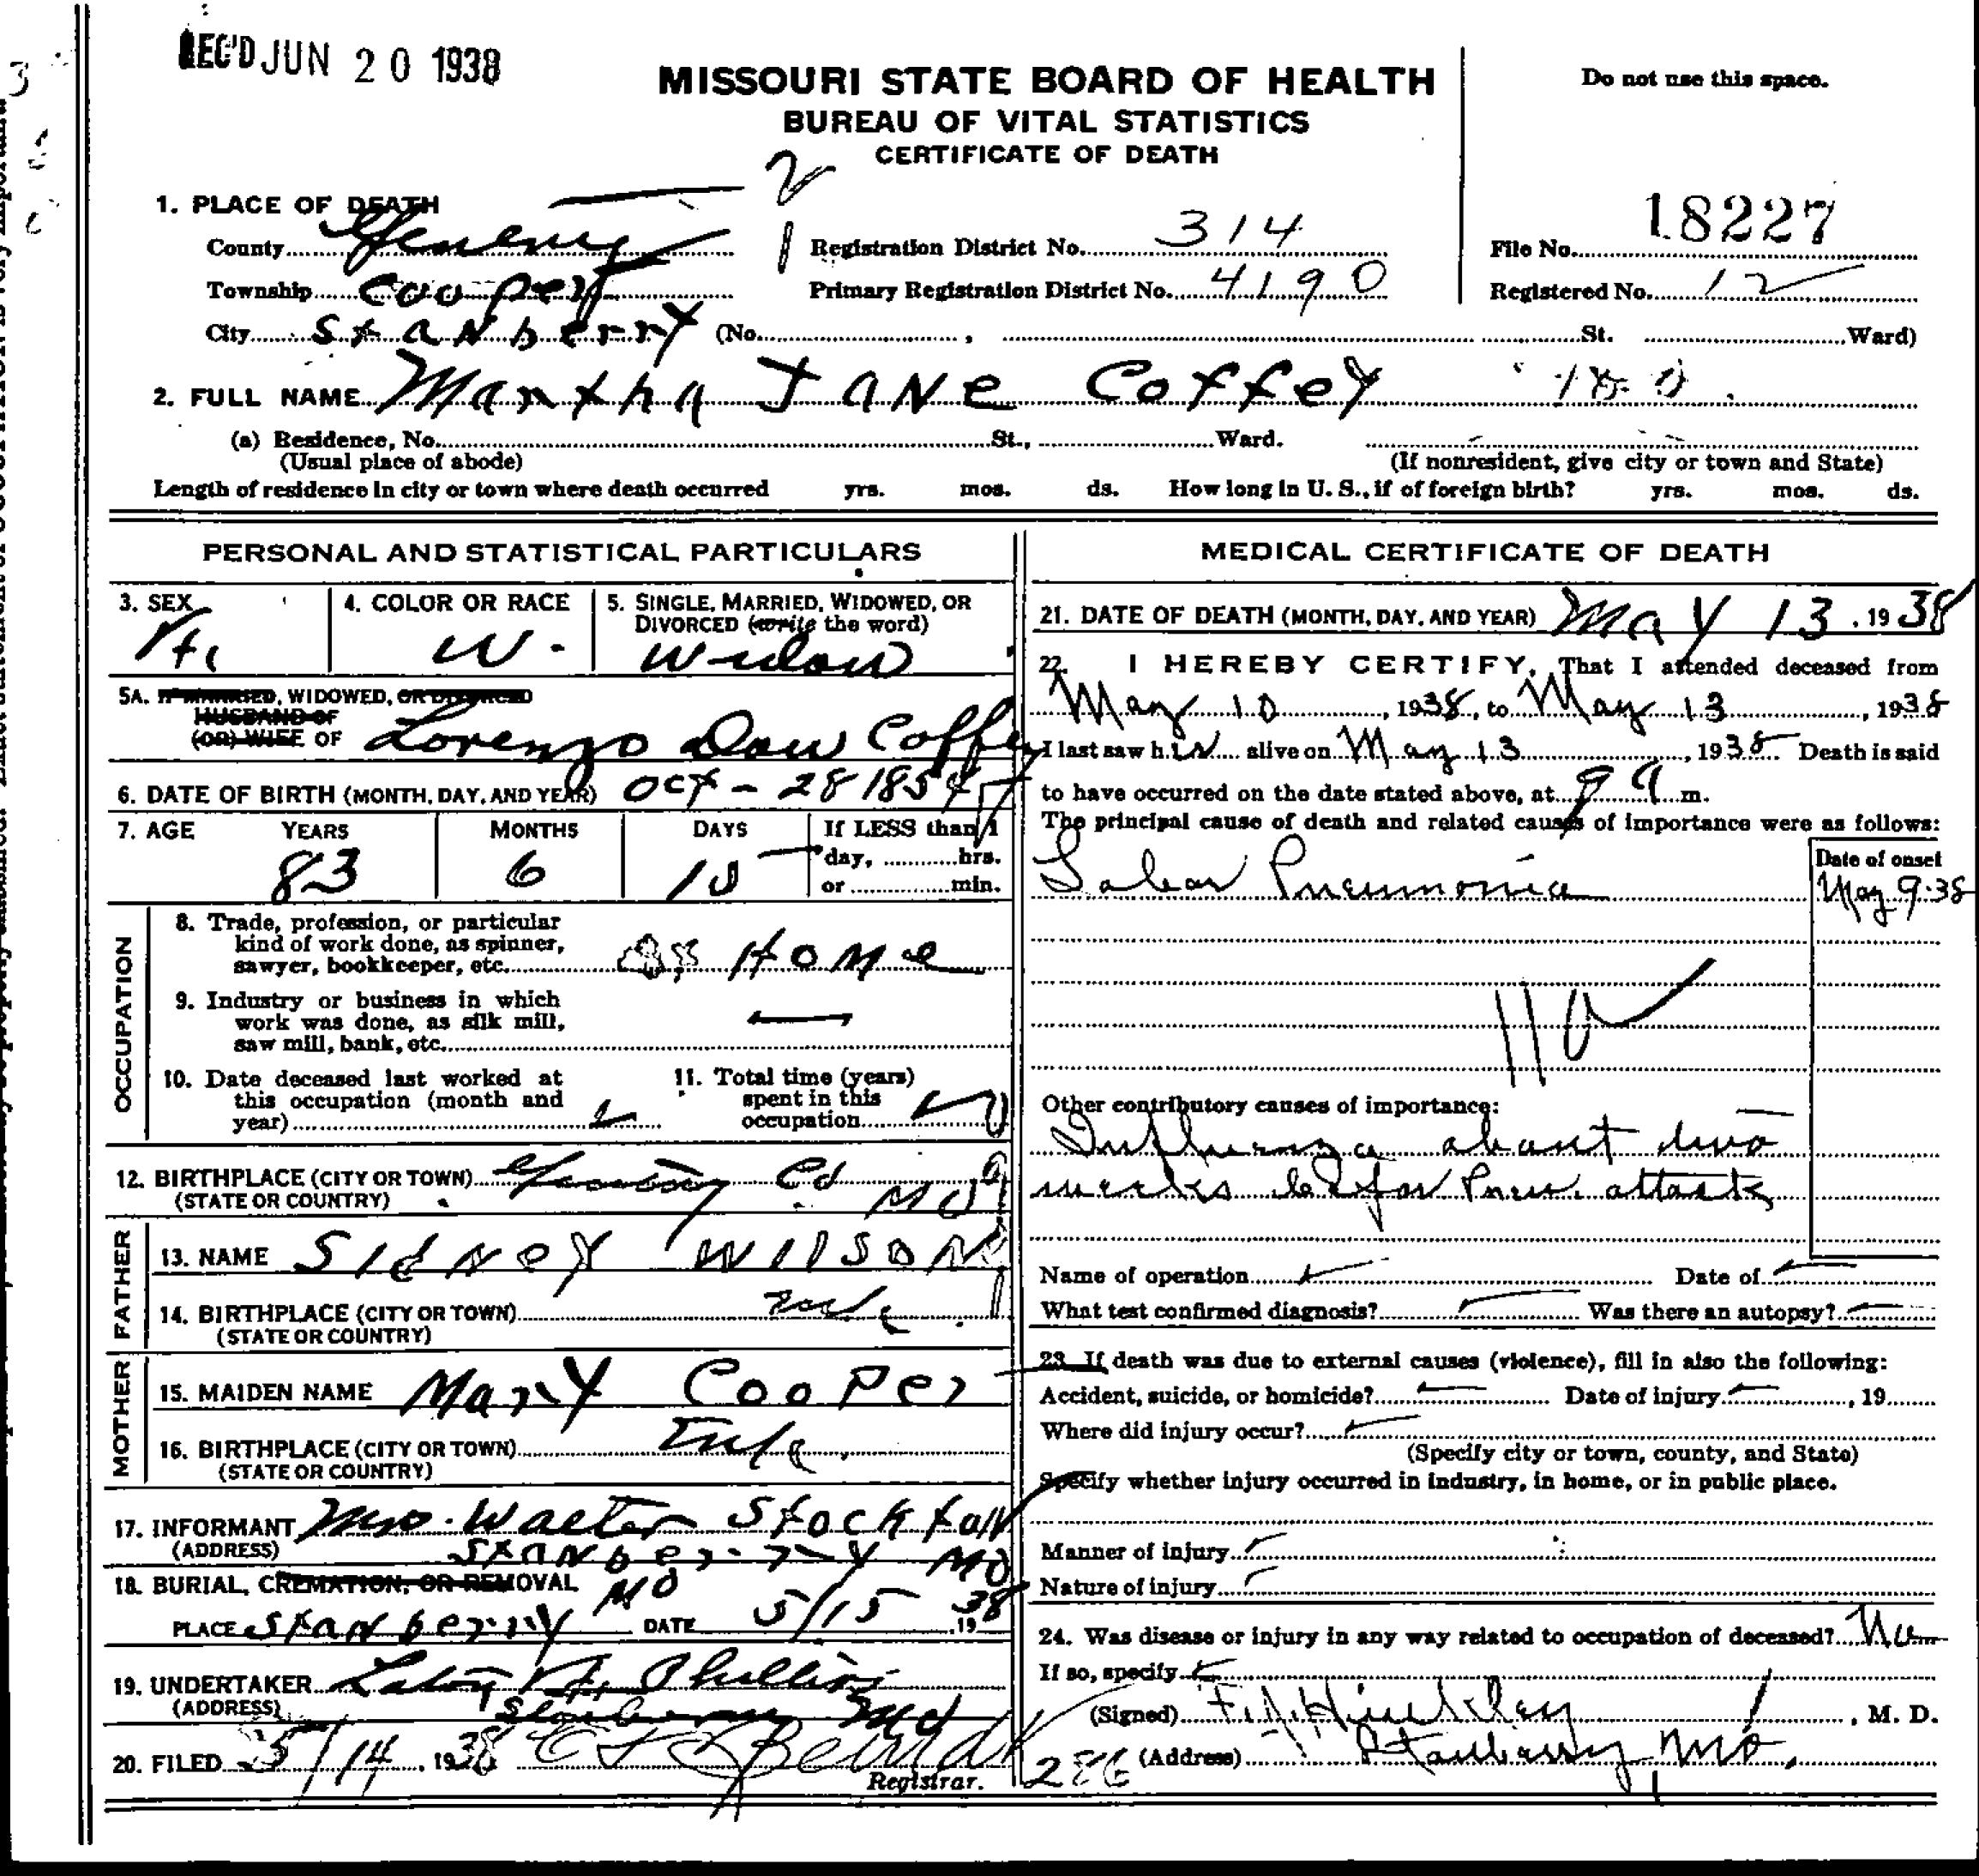 REC'D JUN 20 1938
MISSOURI STATE BOARD OF HEALTH
BUREAU OF VITAL STATISTICS
CERTIFICATE OF DEATH
Do not use this space.
2
1. PLACE OF DEATH
County
Registration District No. 314
File No. 18227
Township Cooper
Primary Registration District No. 4190
Registered No. 12
City Stanberry (No. , St. Ward)
2. FULL NAME Martha Jane Coffey
(a) Residence, No. St., Ward.
(Usual place of abode) (If nonresident, give city or town and State)
Length of residence in city or town where death occurred yrs. mos. ds. How long in U. S., if of foreign birth? yrs. mos. ds.
PERSONAL AND STATISTICAL PARTICULARS
3. SEX
4. COLOR OR RACE
W.
5. SINGLE, MARRIED, WIDOWED, OR
DIVORCED (write the word)
Widow
5A. IF MARRIED, WIDOWED, OR DIVORCED
HUSBAND OF
(OR) WIFE OF Lorenzo Dow Coffey
6. DATE OF BIRTH (MONTH, DAY, AND YEAR) Oct - 28 1854
7. AGE YEARS MONTHS DAYS If LESS than 1
day, hrs.
or min.
83 6
OCCUPATION
8. Trade, profession, or particular
kind of work done, as spinner,
sawyer, bookkeeper, etc. Home
9. Industry or business in which
work was done, as silk mill,
saw mill, bank, etc.
10. Date deceased last worked at
this occupation (month and
year)
11. Total time (years)
spent in this
occupation
12. BIRTHPLACE (CITY OR TOWN) Co
(STATE OR COUNTRY) Mo
FATHER
13. NAME Sidney Wilson
14. BIRTHPLACE (CITY OR TOWN)
(STATE OR COUNTRY)
MOTHER
15. MAIDEN NAME Mary Cooper
16. BIRTHPLACE (CITY OR TOWN)
(STATE OR COUNTRY)
17. INFORMANT Mrs. Walter Stockton
(ADDRESS) Stanberry Mo
18. BURIAL, CREMATION, OR REMOVAL
PLACE Stanberry Mo DATE 5/15 1938
19. UNDERTAKER Phillips
(ADDRESS) Stanberry Mo
20. FILED 5/14, 1938
Registrar.
MEDICAL CERTIFICATE OF DEATH
21. DATE OF DEATH (MONTH, DAY, AND YEAR) May 13, 1938
22. I HEREBY CERTIFY, That I attended deceased from
May 10, 1938, to May 13, 1938
I last saw h alive on May 13, 1938 Death is said
to have occurred on the date stated above, at 9 a m.
The principal cause of death and related causes of importance were as follows:
Date of onset
Lobar Pneumonia May 9-38
Other contributory causes of importance:
Influenza about two
weeks before Pneu. attack
Name of operation Date of
What test confirmed diagnosis? Was there an autopsy?
23. If death was due to external causes (violence), fill in also the following:
Accident, suicide, or homicide? Date of injury , 19
Where did injury occur?
(Specify city or town, county, and State)
Specify whether injury occurred in industry, in home, or in public place.
Manner of injury
Nature of injury
24. Was disease or injury in any way related to occupation of deceased? No
If so, specify
(Signed) Hinckley, M. D.
286 (Address) Stanberry, Mo.